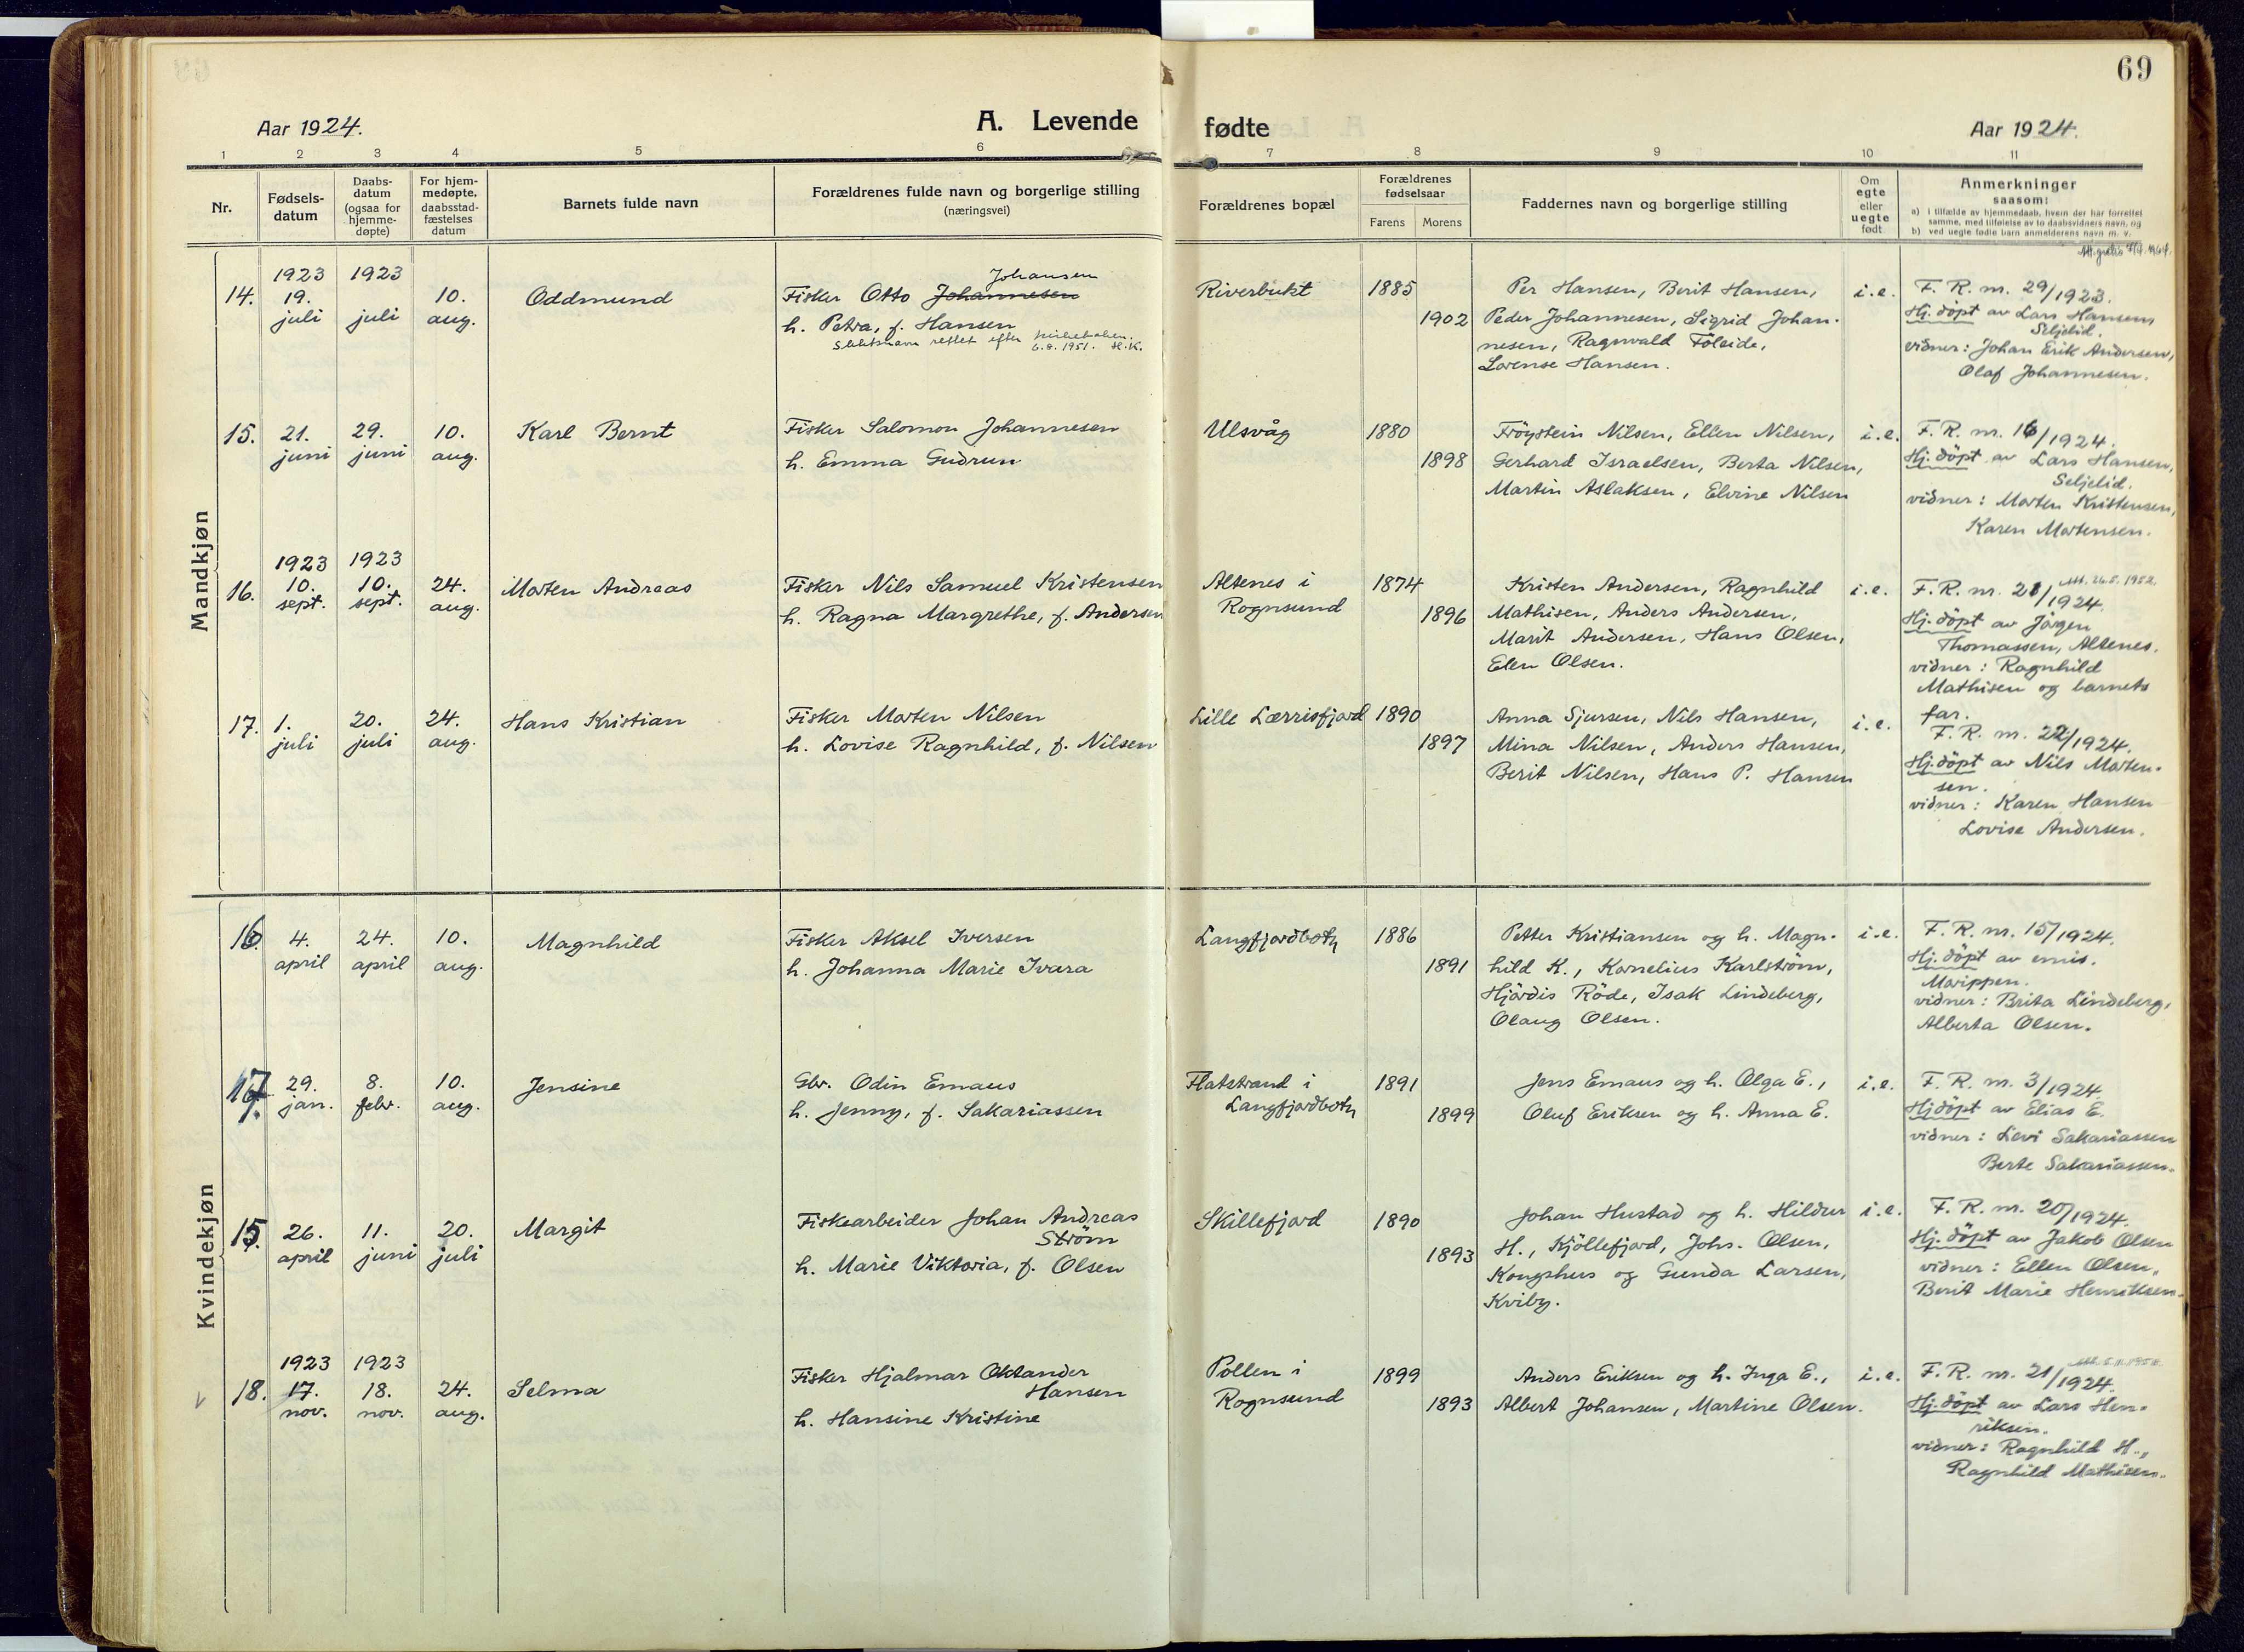 69
Aar 1924.
A. Levende fødte
Aar 1924.
1 2 3 4 5 6 7 8 9 10 11
Nr.
Fødsels-
datum
Daabs-
datum
(ogsaa for
hjemme-
døpte)
For hjem-
medøpte,
daabsstad-
fæstelses
datum
Barnets fulde navn
Forældrenes fulde navn og borgerlige stilling
(næringsvei)
Forældrenes bopæl
Forældrenes
fødselsaar
Farens Morens
Faddernes navn og borgerlige stilling
Om
egte
eller
uegte
født
Anmerkninger
saasom:
a) i tilfælde av hjemmedaab, hvem der har forrettet
samme, med tilføielse av to daabsvidners navn, og
b) ved uegte fødte barn anmelderens navn m. v.
Mandkjøn
14.
1923
19.
juli
1923
juli
10.
aug.
Oddmund
Johansen
Fisker Otto Johannesen
h. Petra, f. Hansen
Slektsnavn rettet efter kirkeboken.
6.8.1951. H.K.
Riverbukt
1885
1902
Per Hansen, Berit Hansen,
Peder Johannesen, Sigrid Johan-
nesen, Ragnvald Töleide,
Lorense Hansen.
i.e.
F. R. nr. 29/1923.
Hj. döpt av Lars Hansens
Seljelid.
vidner: Johan Erik Andersen,
Olaf Johannesen.
15.
21.
juni
29.
juni
10.
aug.
Karl Bernt
Fisker Salomon Johannesen
h. Emma Gudrun
Ulsvåg
1880
1898
Fröystein Nilsen, Ellen Nilsen,
Gerhard Israelsen, Berta Nilsen,
Martin Aslaksen, Elvine Nilsen
i.e.
F. R. nr. 16/1924.
Hj. döpt av Lars Hansen,
Seljelid.
vidner: Morten Kristensen,
Karen Mortensen.
16.
1923
10.
sept.
1923
10.
sept.
24.
aug.
Morten Andreas
Fisker Nils Samuel Kristensen
h. Ragna Margrethe, f. Andersen
Altenes i
Rognsund
1874
1896
Kristen Andersen, Ragnhild
Mathisen, Anders Andersen,
Marit Andersen, Hans Olsen,
Elen Olsen.
i.e.
Att. 26.5.1952.
F. R. nr. 21/1924.
Hj. döpt av Jörgen
Thomassen, Altenes.
vidner: Ragnhild
Mathisen og barnets
far.
17.
1.
juli
20.
juli
24.
aug.
Hans Kristian
Fisker Morten Nilsen
h. Lovise Ragnhild, f. Nilsen
Lille Lærrisfjord
1890
1897
Anna Sjursen, Nils Hansen,
Mina Nilsen, Anders Hansen,
Berit Nilsen, Hans P. Hansen
i.e.
F. R. nr. 22/1924.
Hj. döpt av Nils Morten-
sen.
vidner: Karen Hansen
Lovise Andersen.
Kvindekjøn
16.
4.
april
24.
april
10.
aug.
Magnhild
Fisker Aksel Iversen
h. Johanna Marie Ivara
Langfjordbotn
1886
1891
Petter Kristiansen og h. Magn-
hild K., Kornelius Karlström,
Hjördis Röde, Isak Lindeberg,
Olaug Olsen.
i.e.
F. R. nr. 15/1924.
Hj. döpt av emis.
Morippen.
vidner: Brita Lindeberg,
Alberta Olsen.
17.
29.
jan.
8.
febr.
10.
aug.
Jensine
Gbr. Odin Emaus
h. Jenny, f. Sakariassen
Flatstrand i
Langfjordbotn
1891
1899
Jens Emaus og h. Olga E.,
Oluf Eriksen og h. Anna E.
i.e.
F. R. nr. 3/1924.
Hj döpt av Elias E.
vidner: Levi Sakariassen
Berte Sakariassen.
15.
26.
april
11.
juni
20.
juli
Margit
Fiskearbeider Johan Andreas
Ström
h. Marie Viktoria, f. Olsen
Skillefjord
1890
1893
Johan Hustad og h. Hildur
H., Kjöllefjord, Johs. Olsen,
Kongshus og Gunda Larsen,
Kviby.
i.e.
F. R. nr. 20/1924.
Hj. döpt av Jakob Olsen
vidner: Ellen Olsen,
Berit Marie Henriksen.
18.
1923
17.
nov.
1923
18.
nov.
24.
aug.
Selma
Fisker Hjalmar Oktander
Hansen
h. Hansine Kristine
Pollen i
Rognsund
1899
1893
Anders Eriksen og h. Inga E.,
Albert Johansen, Martine Olsen.
i.e.
F. R. nr. 21/1924.
Hj. döpt av Lars Hen-
riksen.
vidner: Ragnhild H.,
Ragnhild Mathisen.